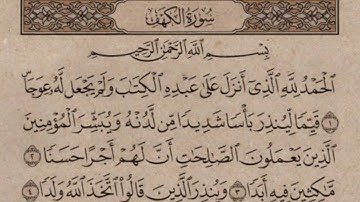 سورة الكهف
بِسْمِ اللَّهِ الرَّحْمَٰنِ الرَّحِيمِ
الْحَمْدُ لِلَّهِ الَّذِي أَنزَلَ عَلَىٰ عَبْدِهِ الْكِتَابَ وَلَمْ يَجْعَل لَّهُ عِوَجًا ۜ
١ قَيِّمًا لِّيُنذِرَ بَأْسًا شَدِيدًا مِّن لَّدُنْهُ وَيُبَشِّرَ الْمُؤْمِنِينَ
الَّذِينَ يَعْمَلُونَ الصَّالِحَاتِ أَنَّ لَهُمْ أَجْرًا حَسَنًا ٢
مَّاكِثِينَ فِيهِ أَبَدًا ٣ وَيُنذِرَ الَّذِينَ قَالُوا اتَّخَذَ اللَّهُ وَلَدًا ٤